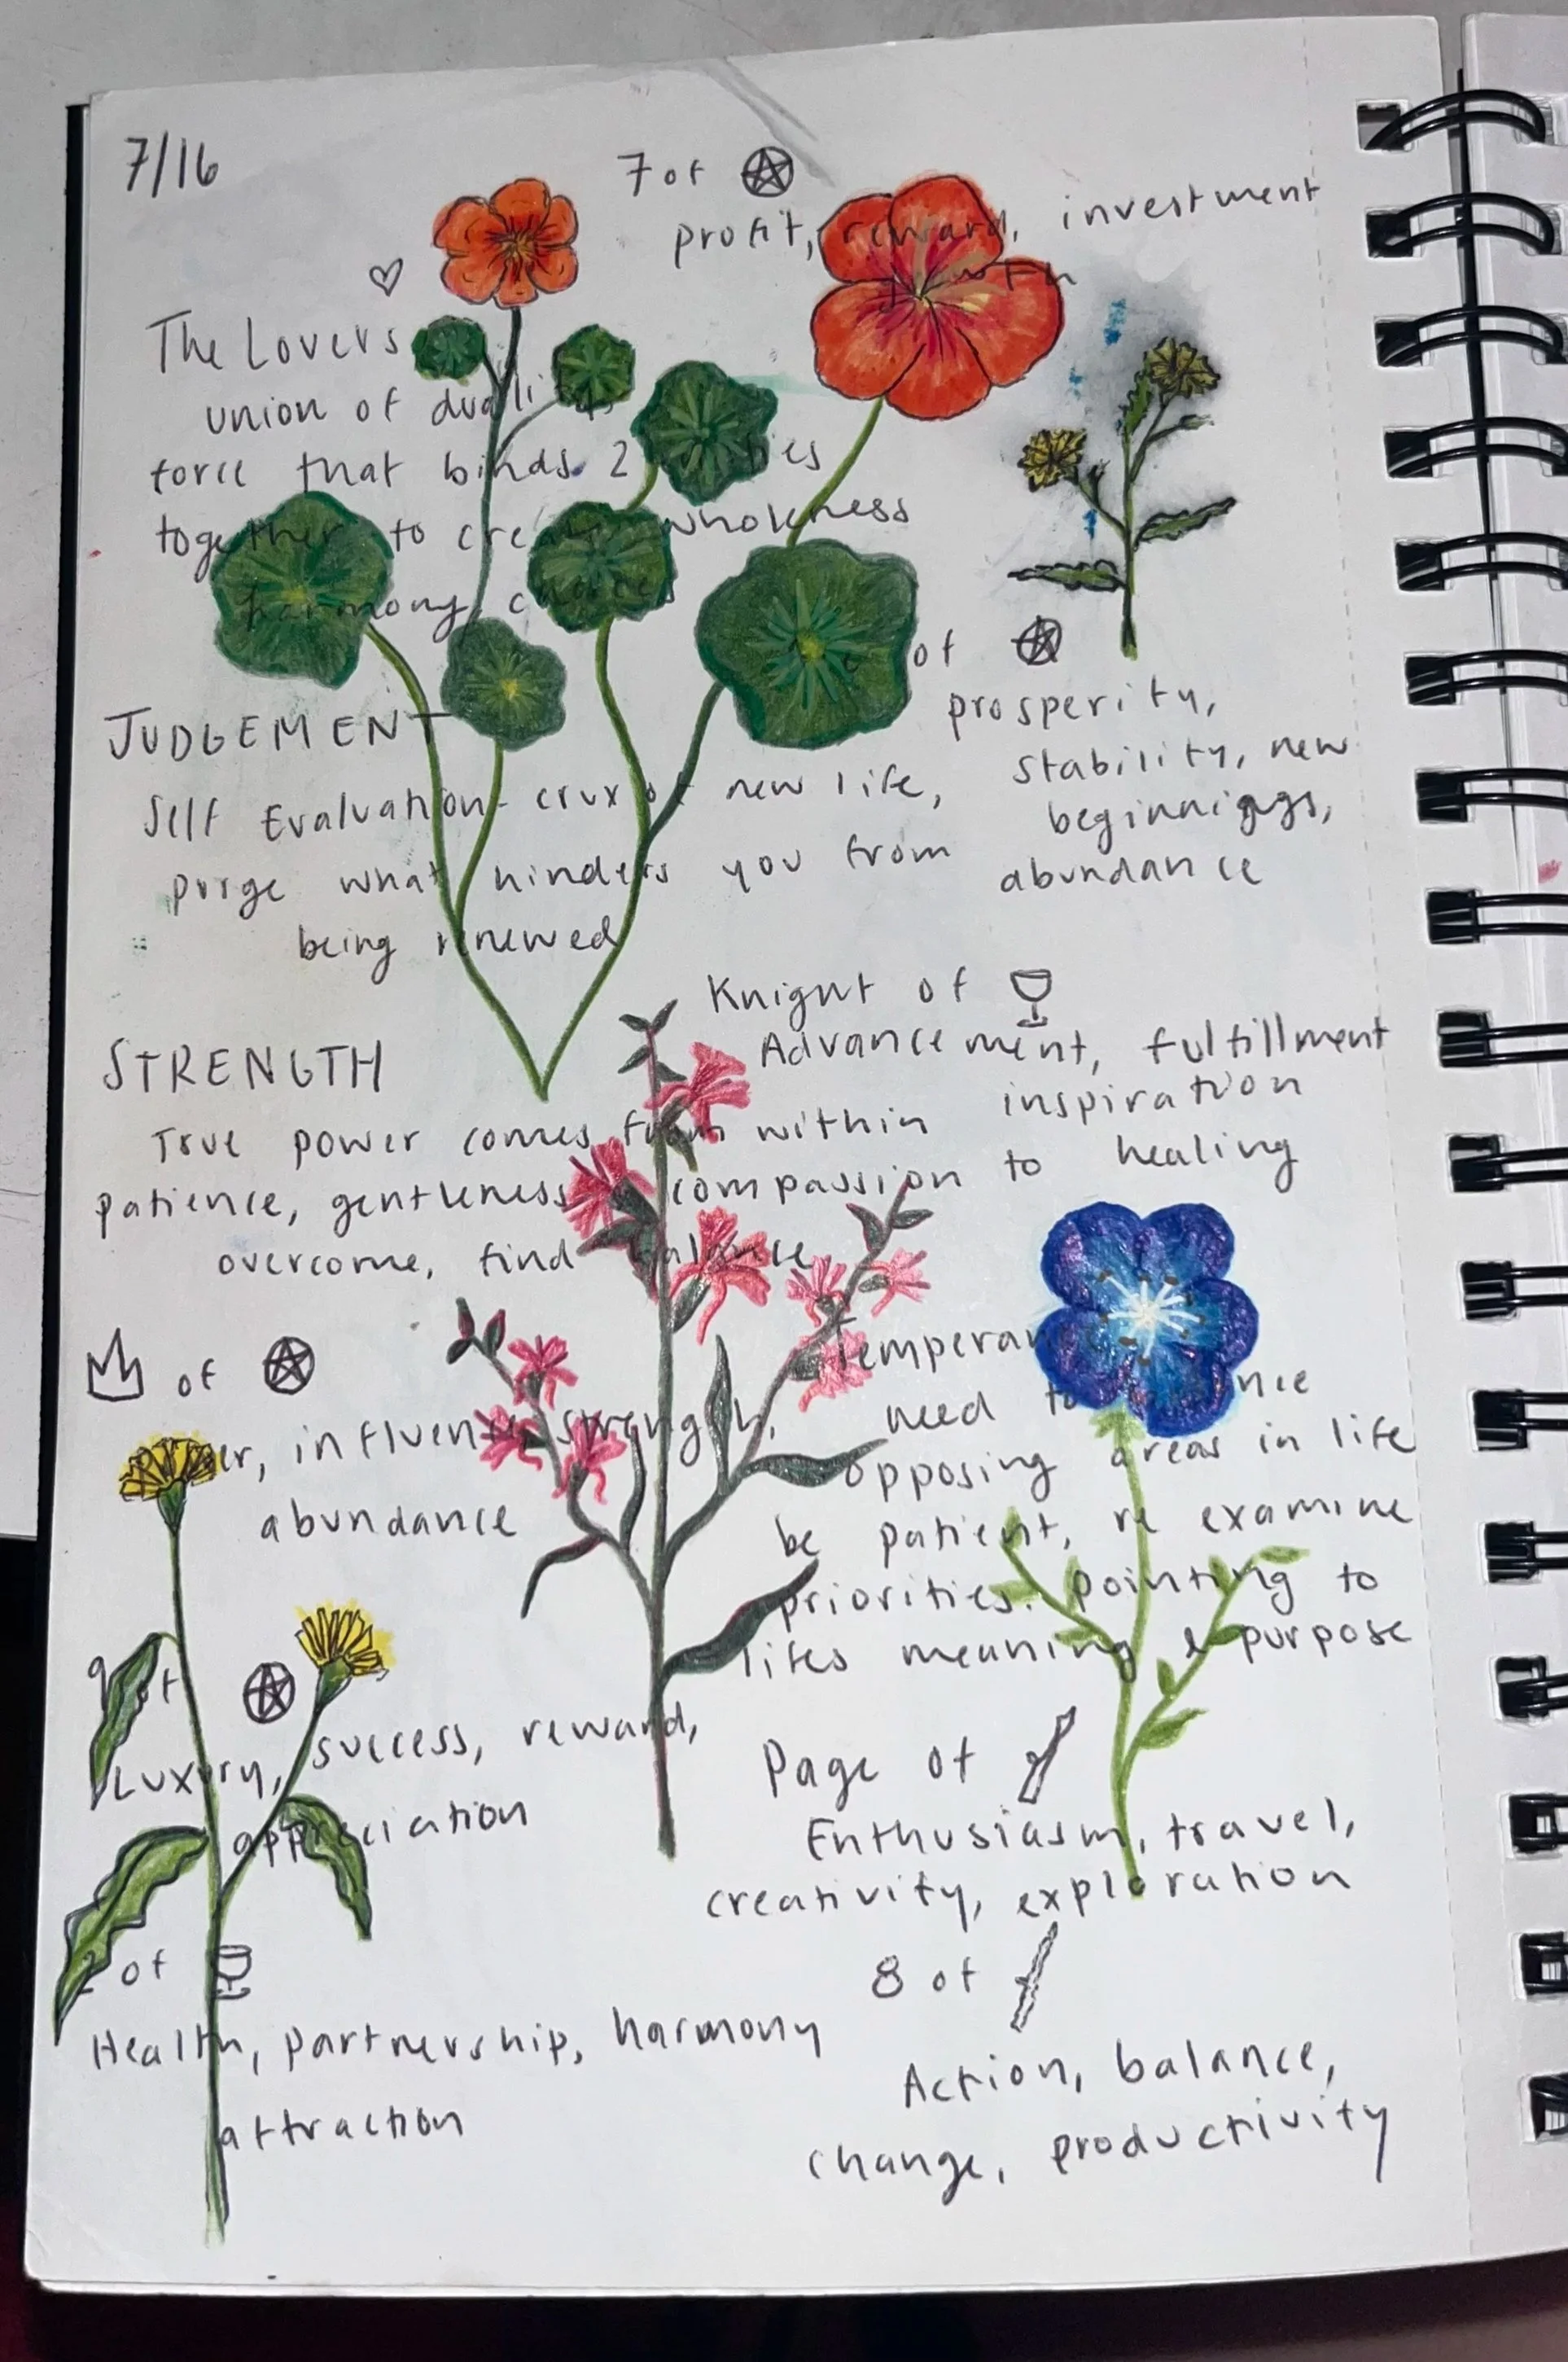 7/16
7 of
profit, reward, investment
The Lovers
union of
force that binds 2
together to create wholeness
harmony,
of
prosperity,
stability, new
beginnigngs,
abundance
JUDGEMENT
Self Evaluation - crux of new life,
purge what hinders you from
being renewed
Knight of
Advancement, fulfillment
inspiration
healing
STRENGTH
True power comes from within
patience, gentleness compassion to
overcome, find balance
of
influence, strength,
abundance
need to
opposing areas in life
be patient, re examine
priorities. pointing to
lifes meaning & purpose
9 of
Luxury, success, reward,
appreciation
Page of
Enthusiasm, travel,
creativity, exploration
2 of
Health, partnership, harmony
attraction
8 of
Action, balance,
change, productivity